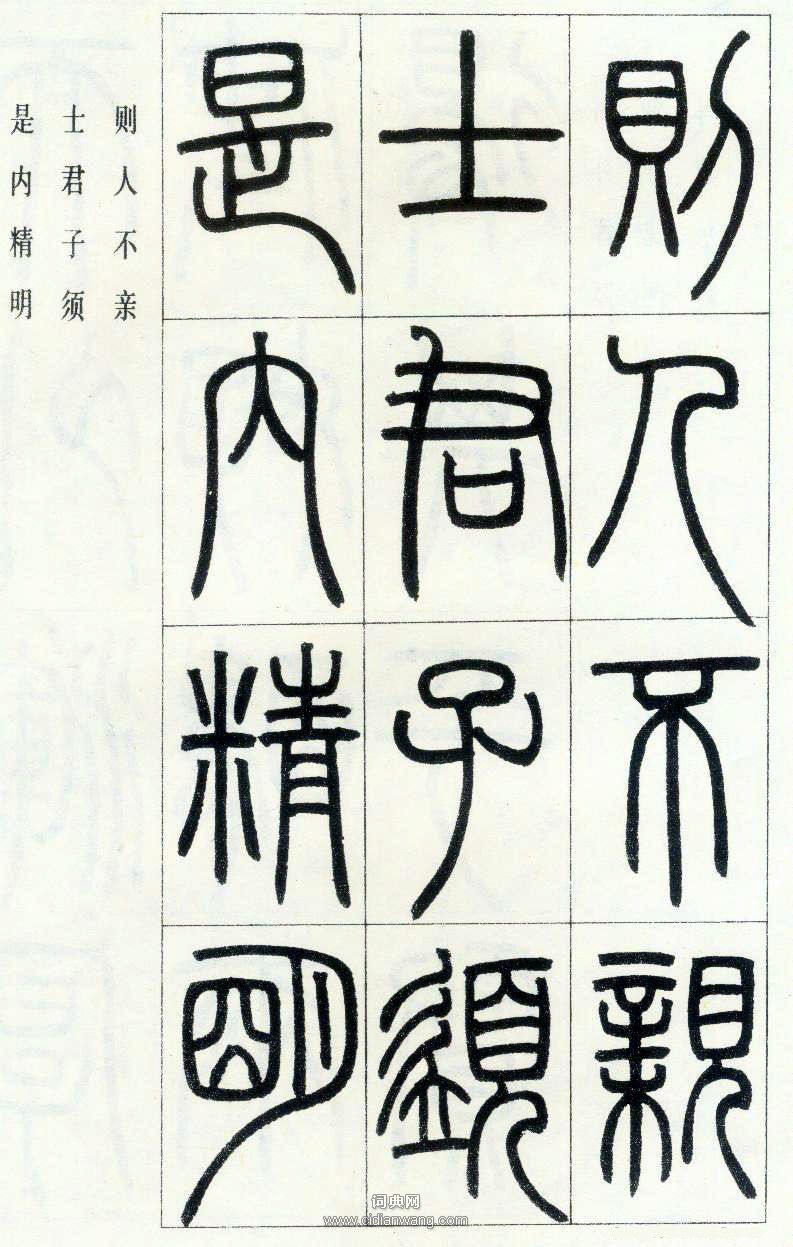 則人不親
士君子須
是内精明
则人不亲
士君子须
是内精明
词典网
www.cidianwang.com